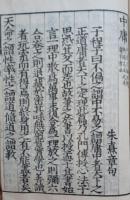 中庸
朱熹章句
子程子曰不偏之謂中不易之謂庸中者天下之
正道庸者天下之定理此篇乃孔門傳授心法子
思恐其久而差也故筆之於書以授孟子其書始
言一理中散為萬事末復合為一理放之則彌六
合卷之則退藏於密其味無窮皆實學也善讀
者玩索而有得焉則終身用之有不能盡者矣
天命之謂性率性之謂道脩道之謂教